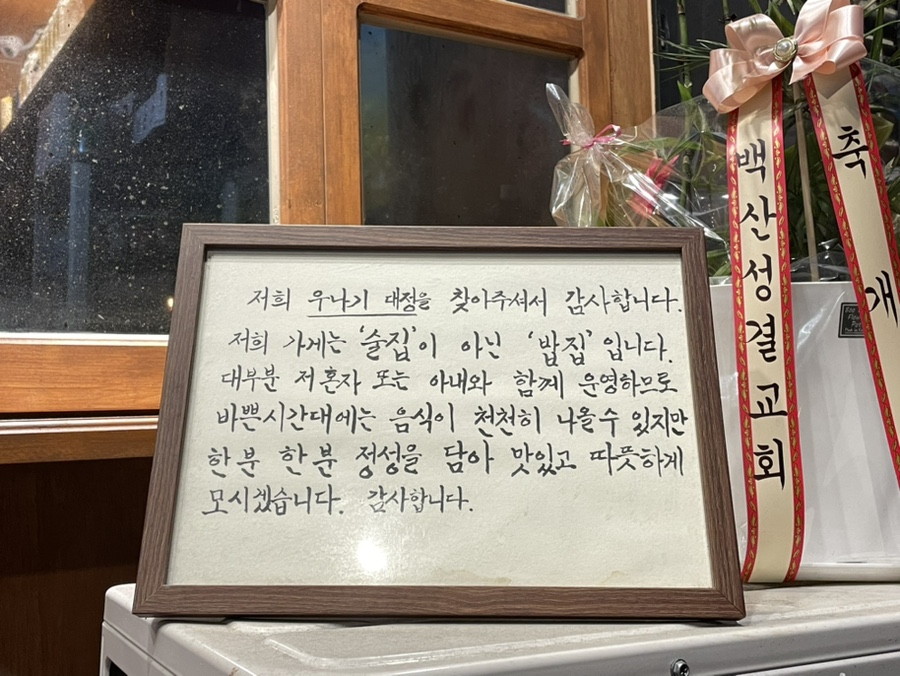 저희 우나기 대정을 찾아주셔서 감사합니다.
저희 가게는 '술집'이 아닌 '밥집'입니다.
대부분 저 혼자 또는 아내와 함께 운영하므로
바쁜시간대에는 음식이 천천히 나올수 있지만
한분 한분 정성을 담아 맛있고 따뜻하게
모시겠습니다. 감사합니다.
백산성결교회
축 개